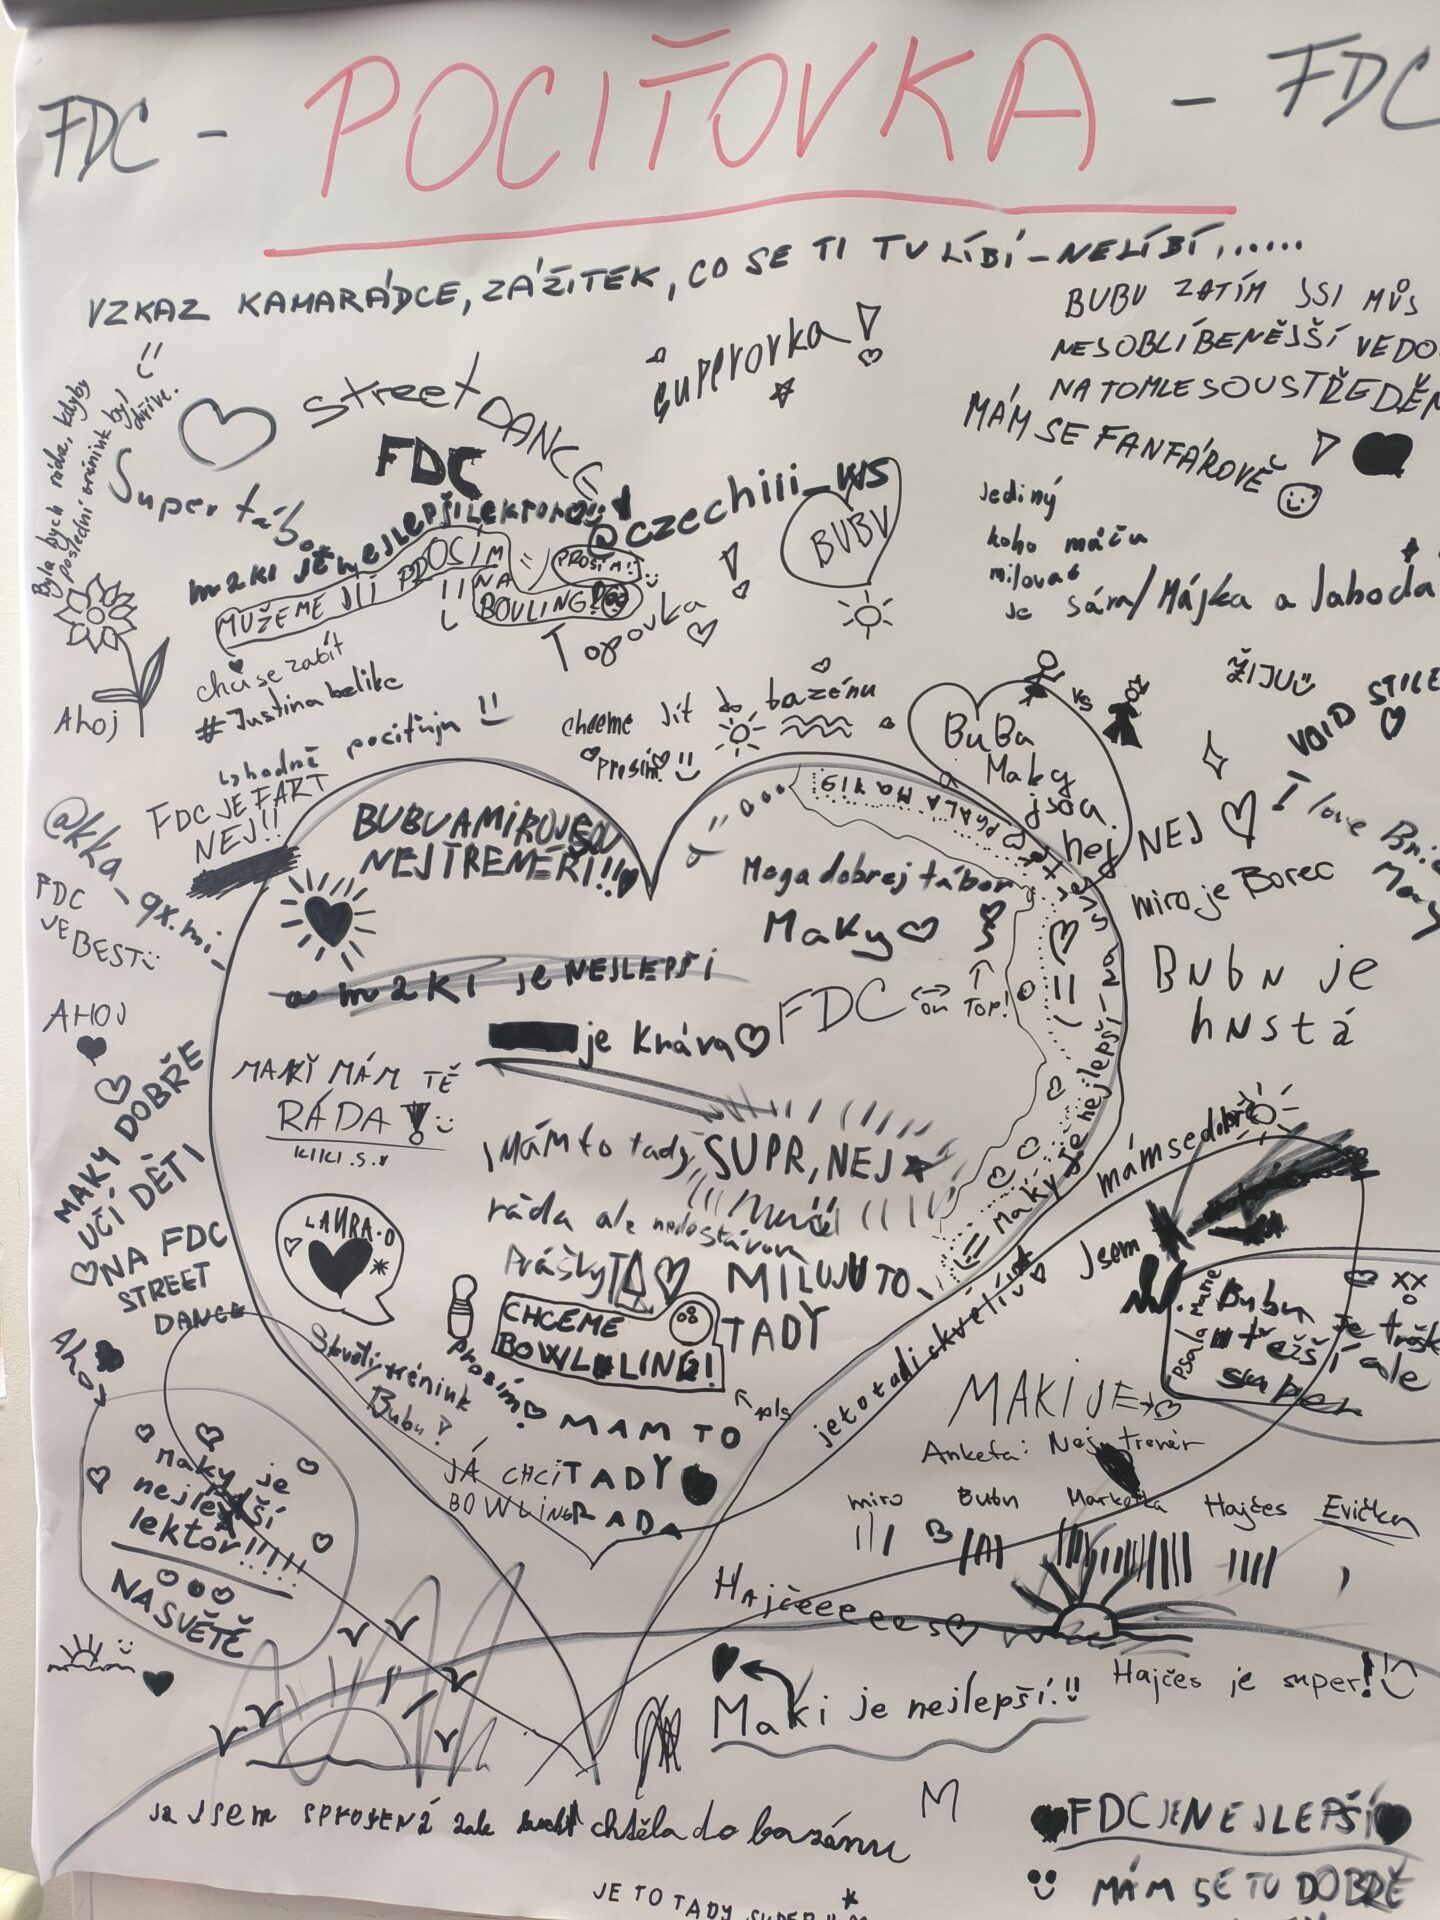 FDC - POCIŤOVKA - FDC
VZKAZ KAMARÁDCE, ZÁŽITEK, CO SE TI TU LÍBÍ - NELÍBÍ......
BUBU ZATÍM JSI MŮJ
NEJOBLÍBENĚJŠÍ VEDO
NA TOMLE SOUSTŘEDĚN
MÁM SE FANFÁROVĚ
superovka!
Street DANCE
FDC
Byla bych ráda, kdyby
poslední trénink byl
dříve.
Super tábo
m2ki je nejlepší lektorq
@czechiii_ws
BUBU
MŮŽEME JÍT PROSÍM
NA
BOVLING?
PROSÍM!
Topovka!
jediný
koho můžu
milovat
je Sára/Májka a Jahoda
chci se zabít
#Justina belike
Ahoj
chceme jít do bazénu
prosím!
ŽIJU
VOID STILE
vs
I love
BuBa
Maky
jsou
nej
rozhodně pociťuju
FDC JE FAKT
NEJ!!
@kka_qx.mi_
FDC
JE BEST
BUBU A MIRO JSOU
NEJTRENÉŘI!!
Mega dobrej tábor
Maky
NEJ
miro je Borec
Bubu je
hustá
a m2ki je NEJLEPŠÍ
FDC on TOP!
je Kráva
AHOJ
MAKI MÁM TĚ
RÁDA!
KIKI.S.
MAKY DOBŘE
UČÍ DĚTI
NA FDC
STREET
DANCE
! Mám to tady SUPR, NEJ
ráda ale nedostávám
Prášky
MILUJU TO
TADY
LAURA:0
CHCEME
BOWLLING!
prosím
pls
Maky je nejlepší na
mám se dobře
Jsem
je to tadi skvelí
psala mne
Bubu je trošk
těžší ale
super
Skvělý trénink
Bubu!
MÁM TO
TADY
RÁDA
JÁ CHCI
BOWLING
Ahoj
MAKI JE
Anketa: Nej trenér
miro Bubu Markétka Hajčes Evička
Maky je
nejlepší
lektor!!!!!
NA SVĚTĚ
Hajčeeeees
Maki je nejlepší!!
Hajčes je super!
ja jsem spokojená jak chtěla do bazénu
M
FDC JE NEJLEPŠÍ
MÁM SE TU DOBŘE
JE TO TADY SUPER